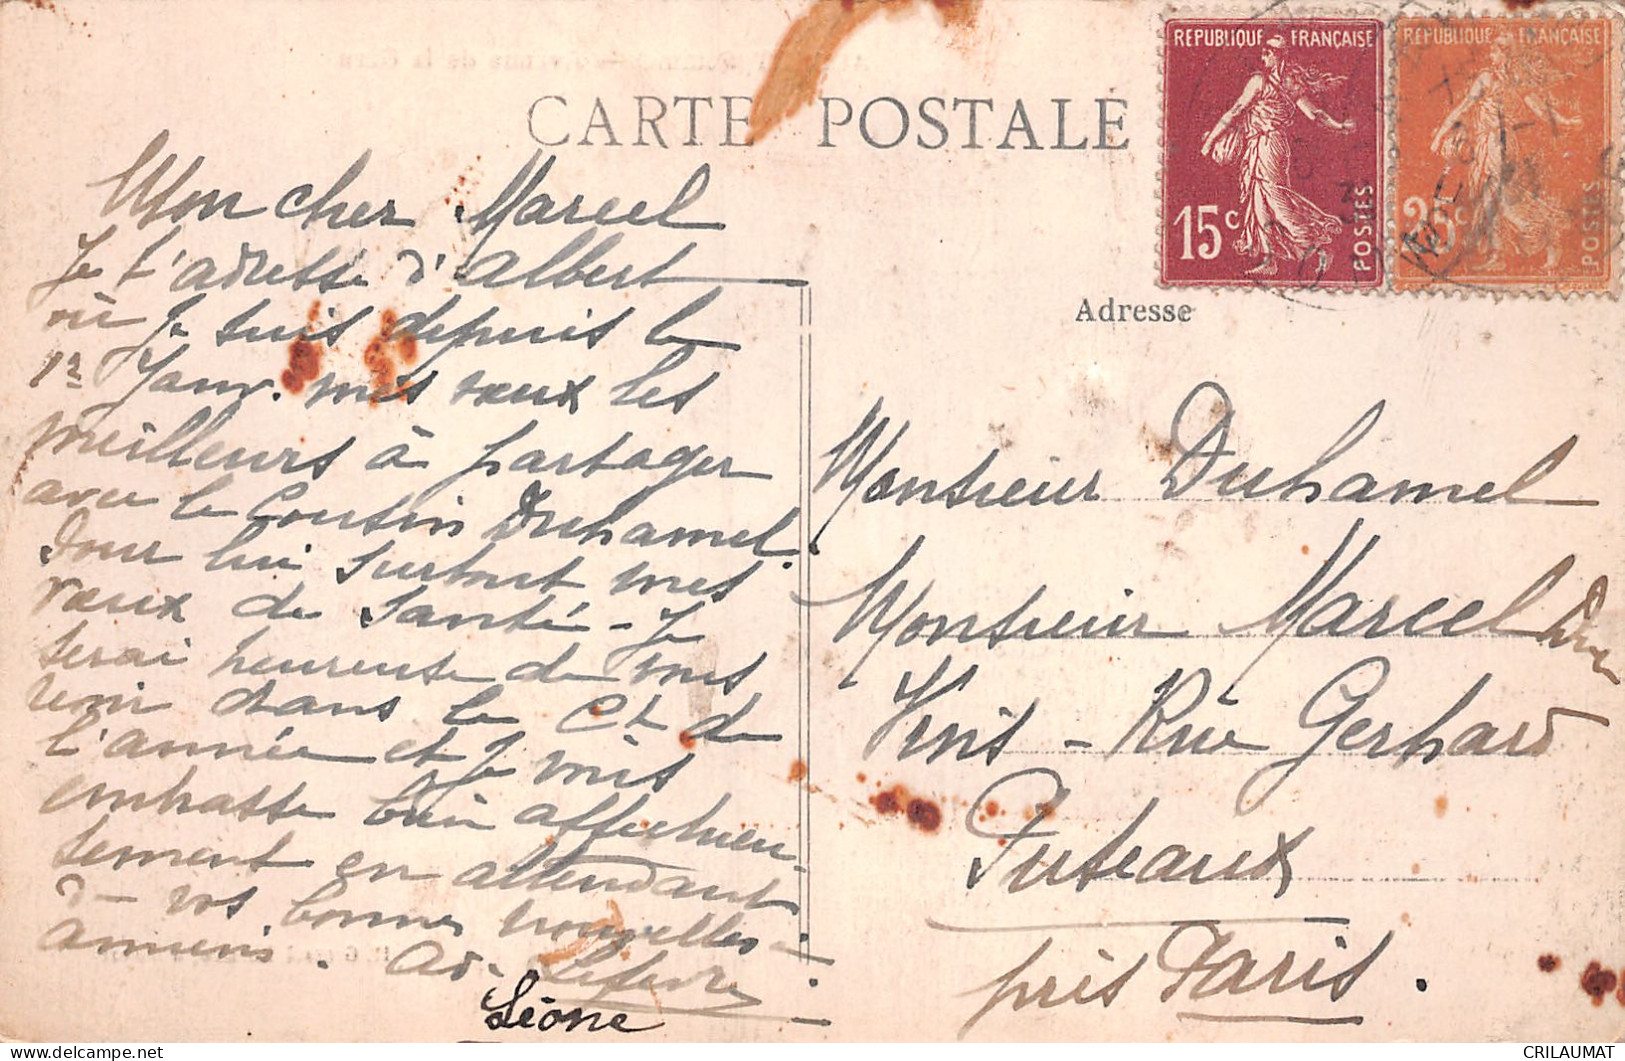 CARTE POSTALE
REPUBLIQUE FRANÇAISE
15c
POSTES
REPUBLIQUE FRANÇAISE
25c
POSTES
Mon cher Marcel
Je t'adresse d'Albert
où je suis depuis le
1er Janv. mes vœux les
meilleurs à partager
avec le Cousin Duhamel.
Pour lui surtout mes
vœux de santé - Je
serai heureuse de vous
voir dans le Ct de
l'année et je vous
embrasse bien affectueu-
sement en attendant
d- vos bonnes nouvelles -
Amiens. Ad- Lefevre
Léone
Adresse
Monsieur Duhamel
Monsieur Marcel
- Rue Gerhard
Puteaux
près Paris.
CRILAUMAT